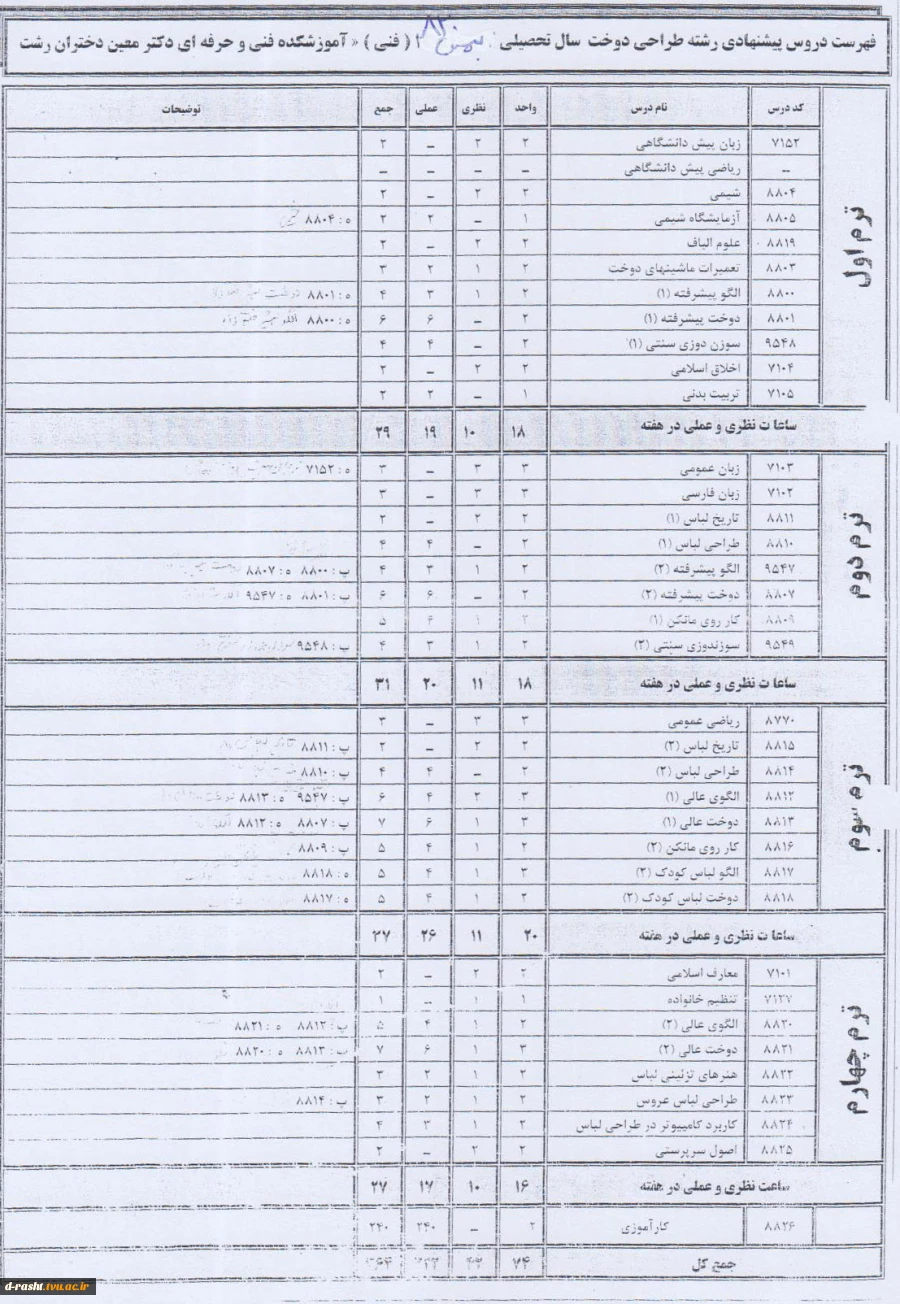 فهرست دروس پیشنهادی رشته طراحی دوخت سال تحصیلی بهمن ۸۲ ( فنی ) « آموزشکده فنی و حرفه ای دکتر معین دختران رشت
کد درس نام درس واحد نظری عملی جمع توضیحات
ترم اول
۷۱۵۲ زبان پیش دانشگاهی ۲ ۲ – ۲
– ریاضی پیش دانشگاهی – – – –
۸۸۰۴ شیمی ۲ ۲ – ۲
۸۸۰۵ آزمایشگاه شیمی ۱ – ۲ ۲ ه : ۸۸۰۴
۸۸۱۹ علوم الیاف ۲ ۲ – ۲
۸۸۰۳ تعمیرات ماشینهای دوخت ۲ ۱ ۲ ۳
۸۸۰۰ الگو پیشرفته (۱) ۲ ۱ ۳ ۴ ه : ۸۸۰۱
۸۸۰۱ دوخت پیشرفته (۱) ۲ – ۶ ۶ ه : ۸۸۰۰
۹۵۴۸ سوزن دوزی سنتی (۱) ۲ – ۴ ۴
۷۱۰۴ اخلاق اسلامی ۲ ۲ – ۲
۷۱۰۵ تربیت بدنی ۱ – ۲ ۲
ساعات نظری و عملی در هفته ۱۸ ۱۰ ۱۹ ۲۹
ترم دوم
۷۱۰۳ زبان عمومی ۳ ۳ – ۳ ه : ۷۱۵۲
۷۱۰۲ زبان فارسی ۳ ۳ – ۳
۸۸۱۱ تاریخ لباس (۱) ۲ ۲ – ۲
۸۸۱۰ طراحی لباس (۱) ۲ – ۴ ۴
۹۵۴۷ الگو پیشرفته (۲) ۲ ۱ ۳ ۴ پ : ۸۸۰۰ ه : ۸۸۰۷
۸۸۰۷ دوخت پیشرفته (۲) ۲ – ۶ ۶ پ : ۸۸۰۱ ه : ۹۵۴۷
۸۸۰۹ کار روی مانکن (۱) ۲ ۱ ۴ ۵
۹۵۴۹ سوزندوزی سنتی (۲) ۲ ۱ ۳ ۴ پ : ۹۵۴۸
ساعات نظری و عملی در هفته ۱۸ ۱۱ ۲۰ ۳۱
ترم سوم
۸۷۷۰ ریاضی عمومی ۳ ۳ – ۳
۸۸۱۵ تاریخ لباس (۲) ۲ ۲ – ۲ پ : ۸۸۱۱
۸۸۱۴ طراحی لباس (۲) ۲ – ۴ ۴ پ : ۸۸۱۰
۸۸۱۲ الگوی عالی (۱) ۳ ۲ ۴ ۶ پ : ۹۵۴۷ ه : ۸۸۱۳
۸۸۱۳ دوخت عالی (۱) ۳ ۱ ۶ ۷ پ : ۸۸۰۷ ه : ۸۸۱۲
۸۸۱۶ کار روی مانکن (۲) ۲ ۱ ۴ ۵ پ : ۸۸۰۹
۸۸۱۷ الگو لباس کودک (۲) ۳ ۱ ۴ ۵ ه : ۸۸۱۸
۸۸۱۸ دوخت لباس کودک (۲) ۲ ۱ ۴ ۵ ه : ۸۸۱۷
ساعات نظری و عملی در هفته ۲۰ ۱۱ ۲۶ ۳۷
ترم چهارم
۷۱۰۱ معارف اسلامی ۲ ۲ – ۲
۷۱۲۷ تنظیم خانواده ۱ ۱ – ۱
۸۸۲۰ الگوی عالی (۲) ۲ ۱ ۴ ۵ پ : ۸۸۱۲ ه : ۸۸۲۱
۸۸۲۱ دوخت عالی (۲) ۳ ۱ ۶ ۷ پ : ۸۸۱۳ ه : ۸۸۲۰
۸۸۲۲ هنرهای تزئینی لباس ۲ ۱ ۲ ۳
۸۸۲۳ طراحی لباس عروس ۲ ۱ ۲ ۳ پ : ۸۸۱۴
۸۸۲۴ کاربرد کامپیوتر در طراحی لباس ۲ ۱ ۳ ۴
۸۸۲۵ اصول سرپرستی ۲ ۲ – ۲
ساعت نظری و عملی در هفته ۱۶ ۱۰ ۱۷ ۲۷
۸۸۲۶ کارآموزی ۲ – ۲۴۰ ۲۴۰
جمع کل ۷۴
d-rasht.tvu.ac.ir